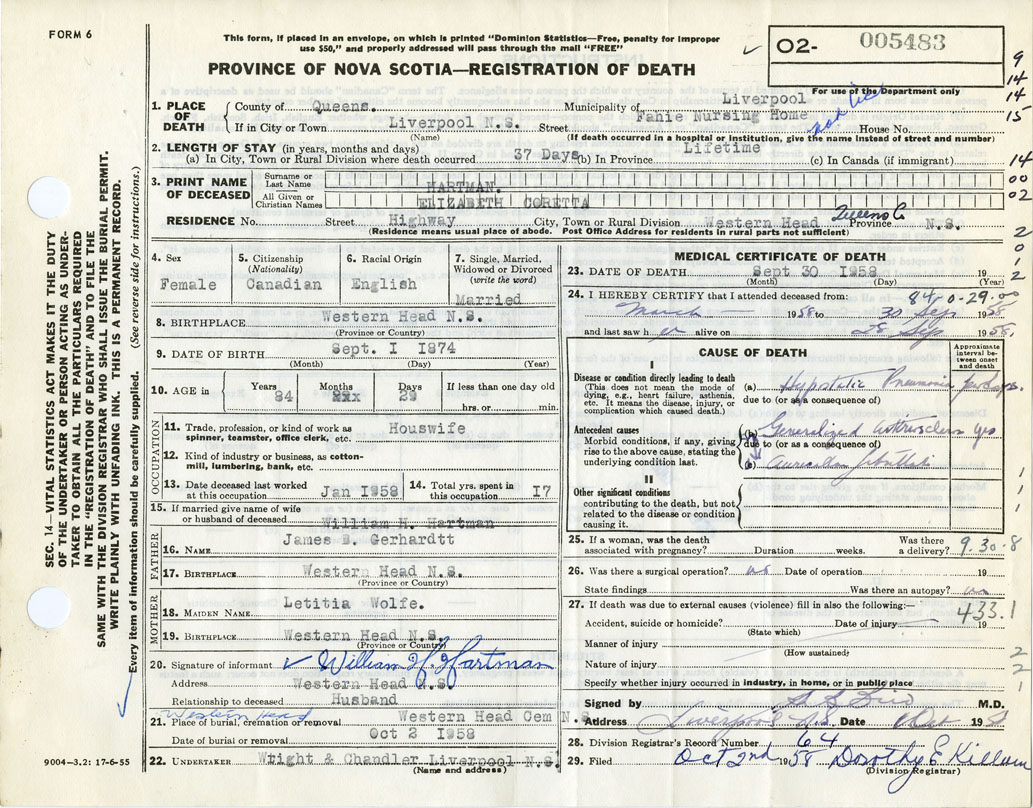 FORM 6
This form, if placed in an envelope, on which is printed "Dominion Statistics—Free, penalty for improper
use $50," and properly addressed will pass through the mail "FREE"
PROVINCE OF NOVA SCOTIA—REGISTRATION OF DEATH
O2- 005483
For use of the Department only
1. PLACE OF DEATH
County of Queens. Municipality of Liverpool
If in City or Town Liverpool N.S. Street Fanie Nursing Home House No.
(Name) (If death occurred in a hospital or institution, give the name instead of street and number)
2. LENGTH OF STAY (in years, months and days)
(a) In City, Town or Rural Division where death occurred 37 Days (b) In Province Lifetime (c) In Canada (if immigrant)
3. PRINT NAME OF DECEASED
Surname or Last Name HARTMAN.
All Given or Christian Names ELIZABETH CORETTA
RESIDENCE No. Street Highway City, Town or Rural Division Western Head Queens Co Province N.S.
(Residence means usual place of abode. Post Office Address for residents in rural parts not sufficient)
4. Sex Female
5. Citizenship (Nationality) Canadian
6. Racial Origin English
7. Single, Married, Widowed or Divorced (write the word) Married
8. BIRTHPLACE Western Head N.S.
(Province or Country)
9. DATE OF BIRTH Sept. I 1874
(Month) (Day) (Year)
10. AGE in Years 84 Months xxx Days 29 If less than one day old hrs. or min.
OCCUPATION
11. Trade, profession, or kind of work as spinner, teamster, office clerk, etc. Houswife
12. Kind of industry or business, as cotton-mill, lumbering, bank, etc.
13. Date deceased last worked at this occupation Jan I958
14. Total yrs. spent in this occupation I7
15. If married give name of wife or husband of deceased William H. Hartman
FATHER
16. NAME James D. Gerhardtt
17. BIRTHPLACE Western Head N.S.
(Province or Country)
MOTHER
18. MAIDEN NAME Letitia Wolfe.
19. BIRTHPLACE Western Head N.S.
(Province or Country)
20. Signature of informant William H. Hartman
Address Western Head N.S.
Relationship to deceased Husband
Western Head
21. Place of burial, cremation or removal Western Head Cem N.S.
Date of burial or removal Oct 2 I958
22. UNDERTAKER Wright & Chandler Liverpool N.S.
(Name and address)
MEDICAL CERTIFICATE OF DEATH
23. DATE OF DEATH Sept 30 I958 19
(Month) (Day) (Year)
24. I HEREBY CERTIFY that I attended deceased from: 84-0-29.00
March — 1958 to 30 Sep 1958
and last saw her alive on 28 Sep 1958,
CAUSE OF DEATH
Approximate interval between onset and death
I
Disease or condition directly leading to death
(This does not mean the mode of dying, e.g., heart failure, asthenia, etc. It means the disease, injury, or complication which caused death.)
(a) Hypostatic Pneumonia
due to (or as a consequence of)
Antecedent causes
Morbid conditions, if any, giving rise to the above cause, stating the underlying condition last.
(b) Generalized yrs
due to (or as a consequence of)
(c) Auricular
II
Other significant conditions
contributing to the death, but not related to the disease or condition causing it.
25. If a woman, was the death associated with pregnancy? Duration weeks. Was there a delivery?
9.30.8
26. Was there a surgical operation? no Date of operation 19
State findings Was there an autopsy?
27. If death was due to external causes (violence) fill in also the following:—
433.1
Accident, suicide or homicide? Date of injury 19
(State which)
Manner of injury
(How sustained)
Nature of injury
Specify whether injury occurred in industry, in home, or in public place
Signed by M.D.
Address Liverpool N.S. Date Oct 19
28. Division Registrar's Record Number 64
29. Filed Oct 2nd 1958 Dorothy E Killam
(Division Registrar)
SEC. 14—VITAL STATISTICS ACT MAKES IT THE DUTY
OF THE UNDERTAKER OR PERSON ACTING AS UNDER-
TAKER TO OBTAIN ALL THE PARTICULARS REQUIRED
IN THE "REGISTRATION OF DEATH" AND TO FILE THE
SAME WITH THE DIVISION REGISTRAR WHO SHALL ISSUE THE BURIAL PERMIT.
WRITE PLAINLY WITH UNFADING INK. THIS IS A PERMANENT RECORD.
Every item of information should be carefully supplied. (See reverse side for instructions.)
9004—3.2: 17-6-55
9
14
14
15
14
00
02
2
0
1
2
1
1
1
2
2
1